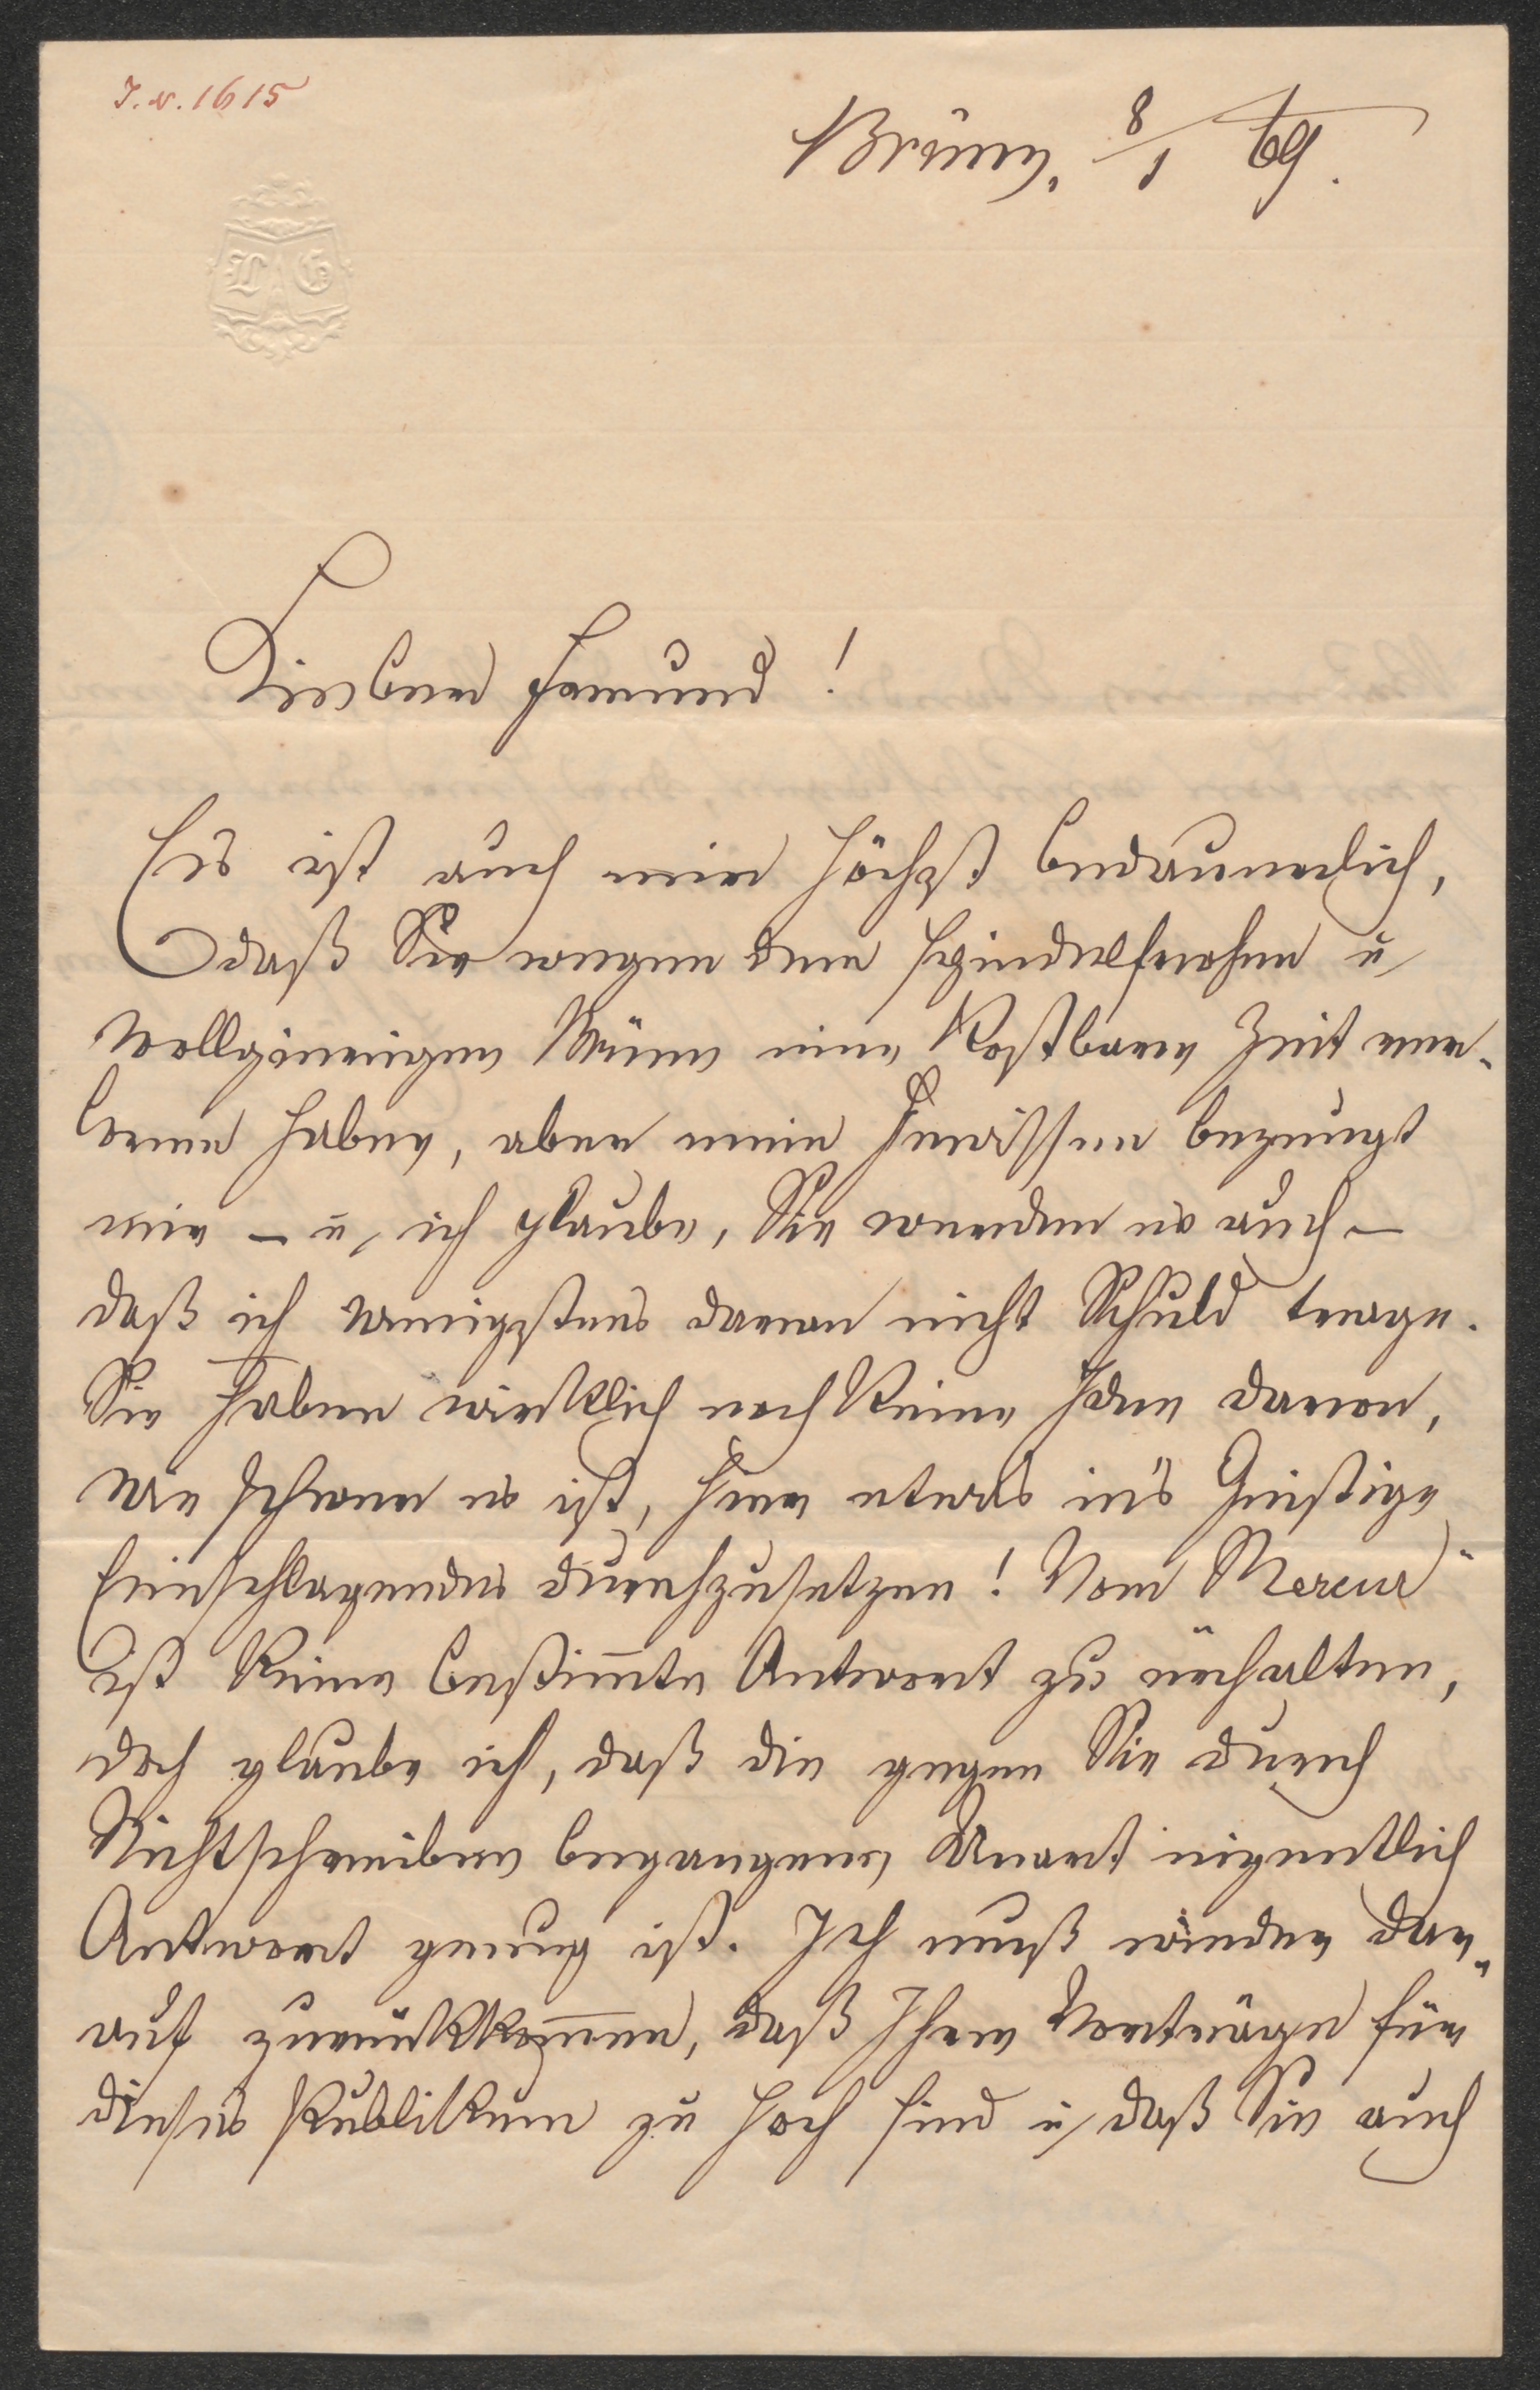 I. N. 1615
Brünn, 8/1 69.
L G
Lieber Freund!
Es ist auch mir höchst bedauerlich,
daß Sie wegen dem schindelfrohen u
wollgierigen Brünn eine kostbare Zeit ver-
loren haben, aber mein Gewissen bezeugt
mir – u, ich glaube, Sie werden es auch –
daß ich wenigstens daran nicht Schuld trage.
Sie haben wirklich noch keine Idee davon,
wie schwer es ist, hier etwas in's Geistige
Einschlagendes durchzusetzen! Vom "Mercur"
ist keine bestim̄te Antwort zu erhalten,
doch glaube ich, daß die gegen Sie durch
Nichtschreiben begangene Unart eigentlich
Antwort genug ist. Ich muß wieder dar-
auf zurückkom̄men, daß Ihre Vorträge für
dieses Publikum zu hoch sind u, daß Sie auch